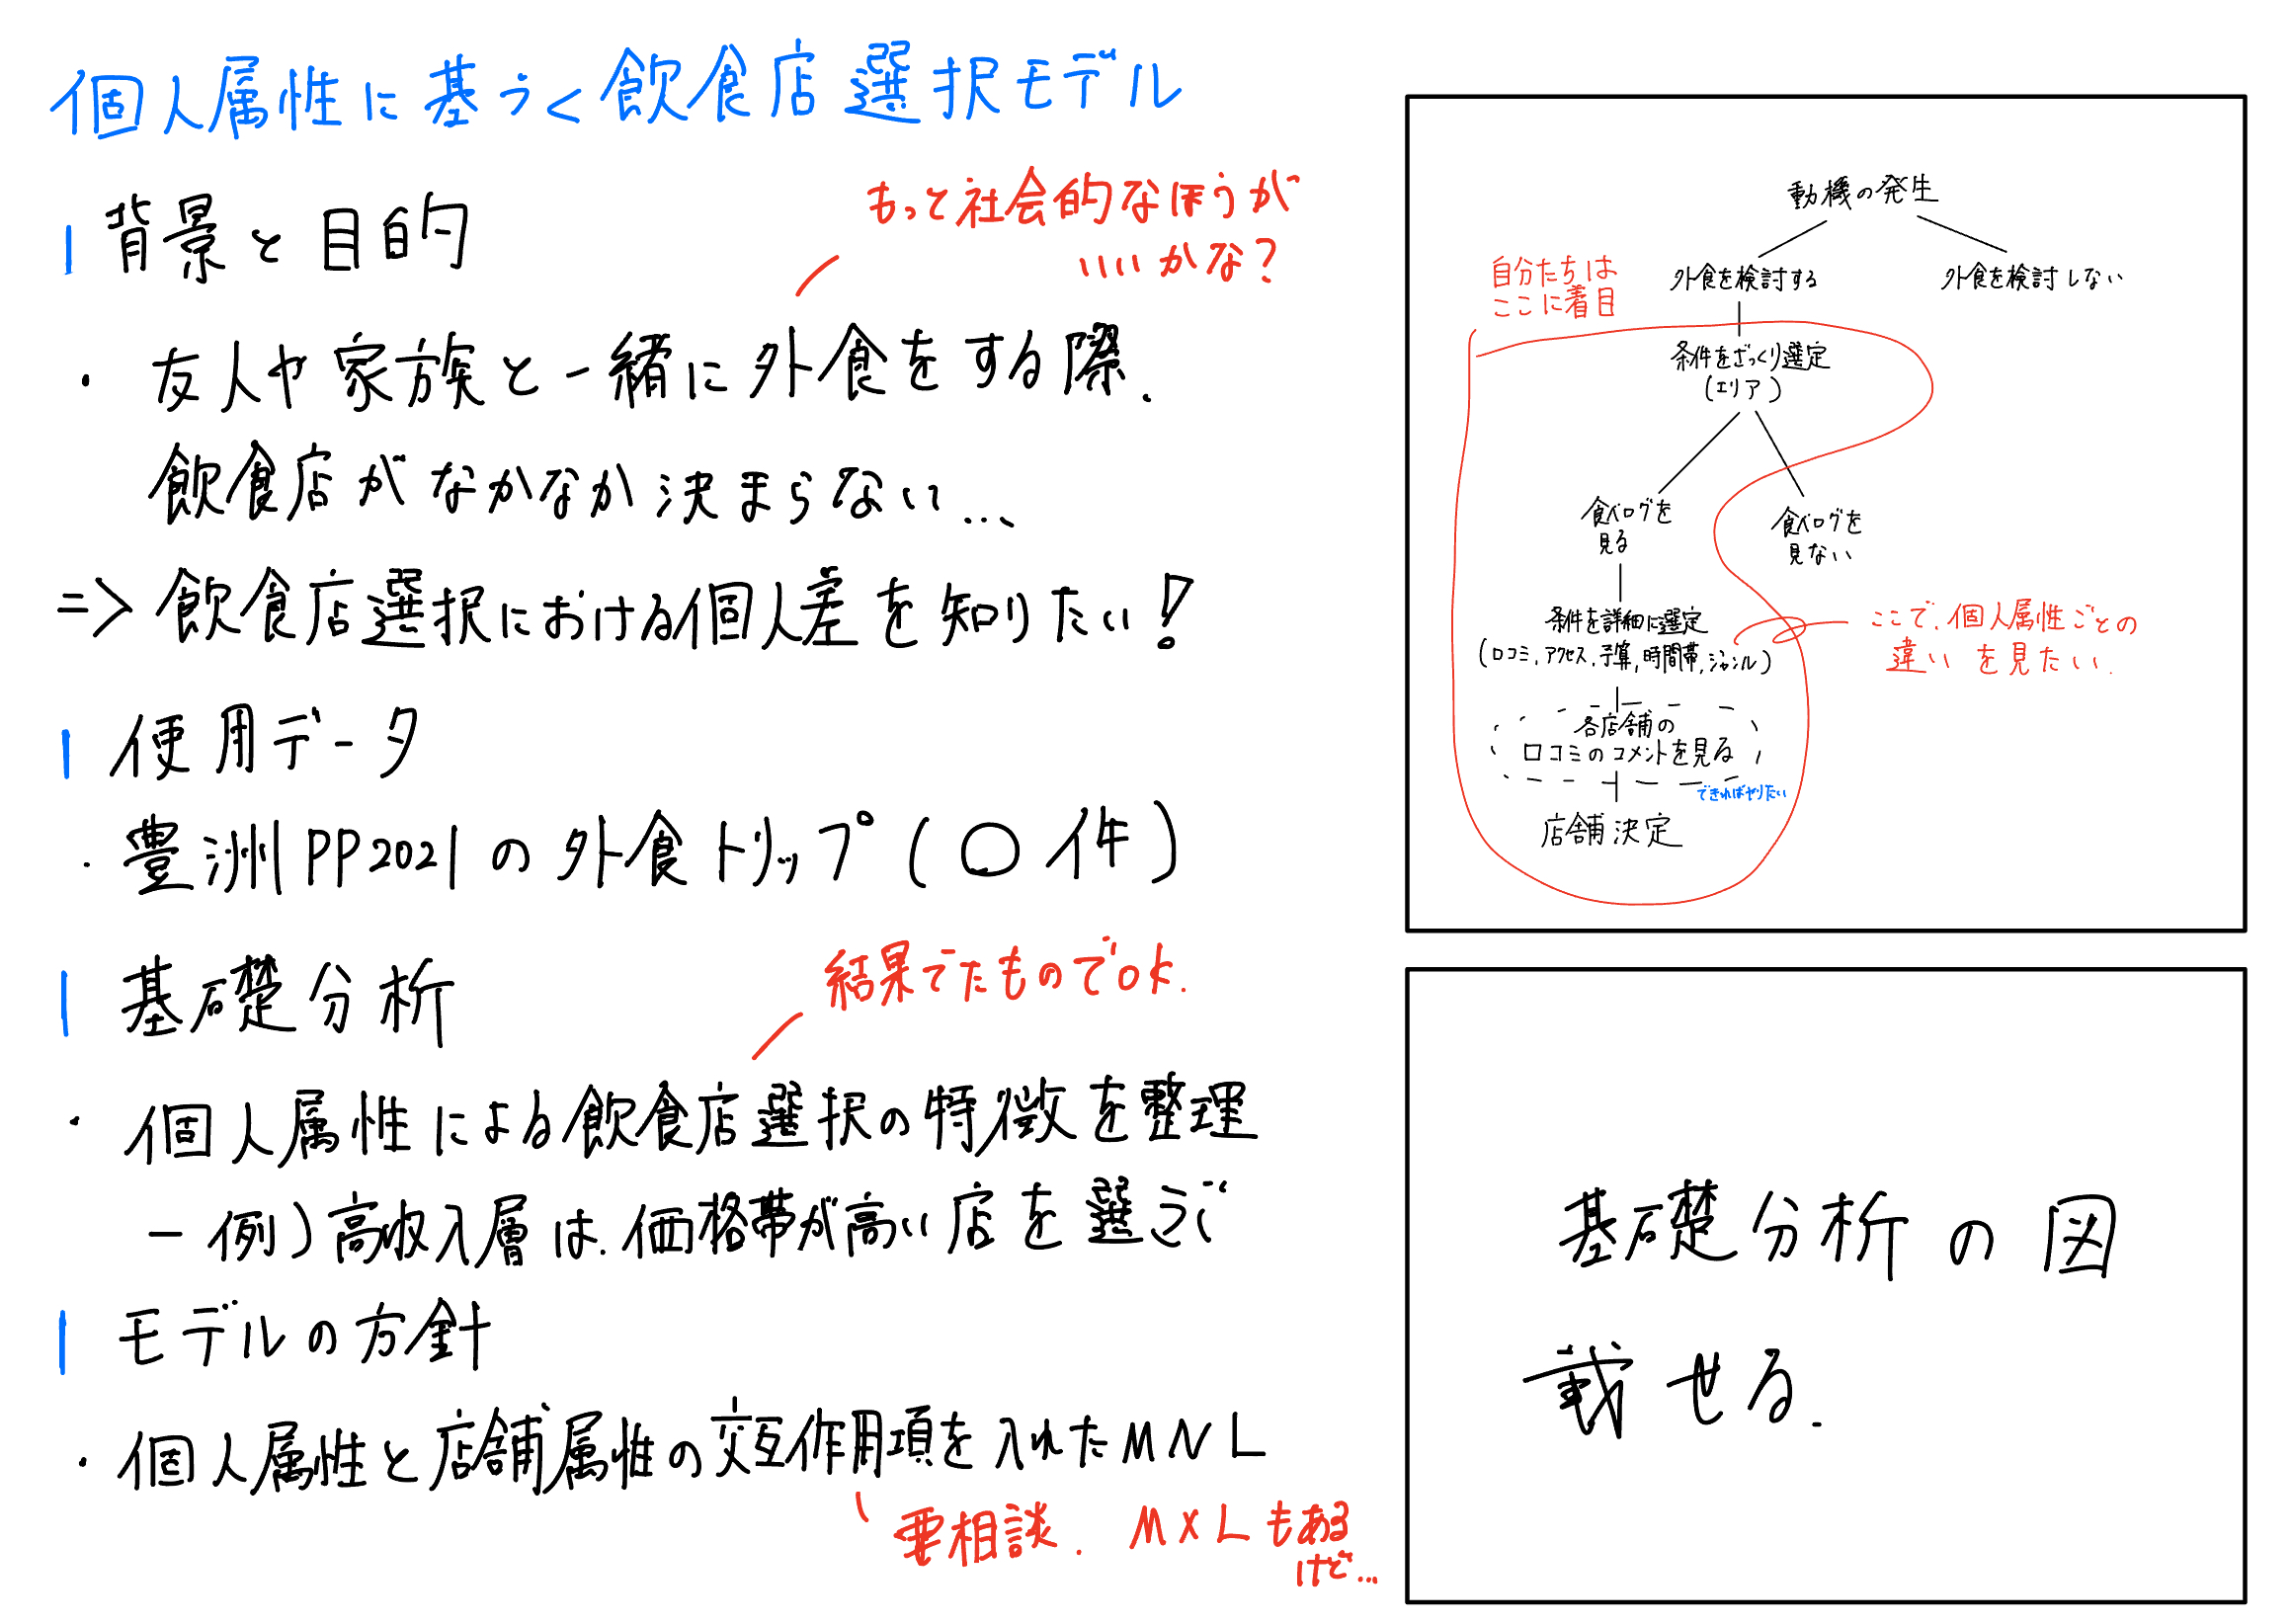 個人属性に基づく飲食店選択モデル
背景と目的
もっと社会的なほうが
いいかな?
・友人や家族と一緒に外食をする際、
飲食店がなかなか決まらない…
=> 飲食店選択における個人差を知りたい!
使用データ
・豊洲PP2021の外食トリップ(〇件)
基礎分析
結果でたものでOK.
・個人属性による飲食店選択の特徴を整理
- 例)高収入層は、価格帯が高い店を選ぶ
モデルの方針
・個人属性と店舗属性の交互作用項を入れたMNL
要相談. MXLもある
けど…
動機の発生
外食を検討する
外食を検討しない
自分たちは
ここに着目
条件をざっくり選定
(エリア)
食べログを
見る
食べログを
見ない
条件を詳細に選定
(口コミ, アクセス, 予算, 時間帯, ジャンル)
ここで、個人属性ごとの
違いを見たい.
各店舗の
口コミのコメントを見る
できればやりたい
店舗決定
基礎分析の図
載せる.